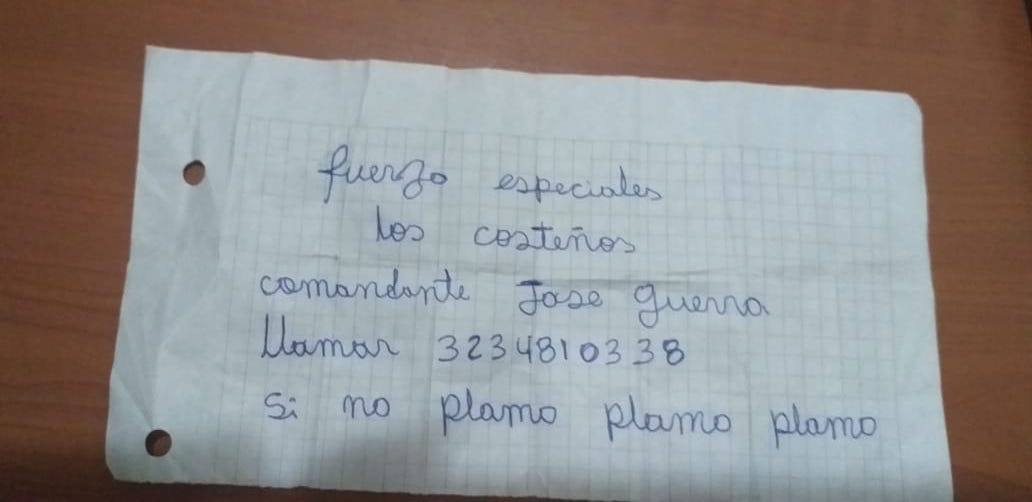 fuerzo especiales
los costeños
comandante Jose guerra
llamar 3234810338
si no plamo plamo plamo